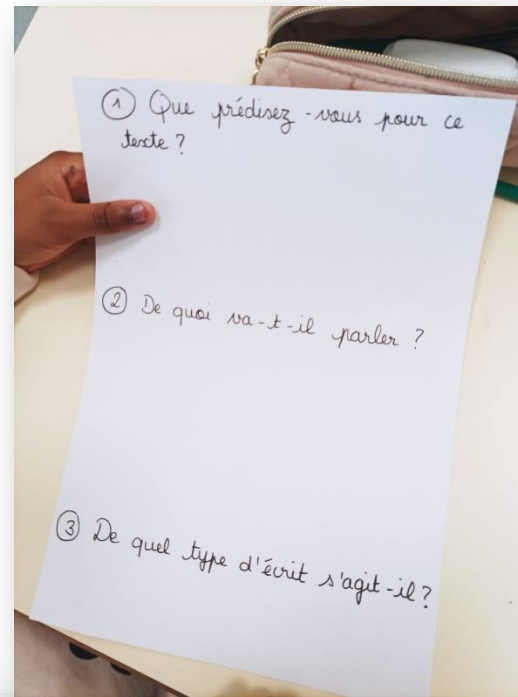 ① Que prédisez-vous pour ce
texte ?
② De quoi va-t-il parler ?
③ De quel type d'écrit s'agit-il ?